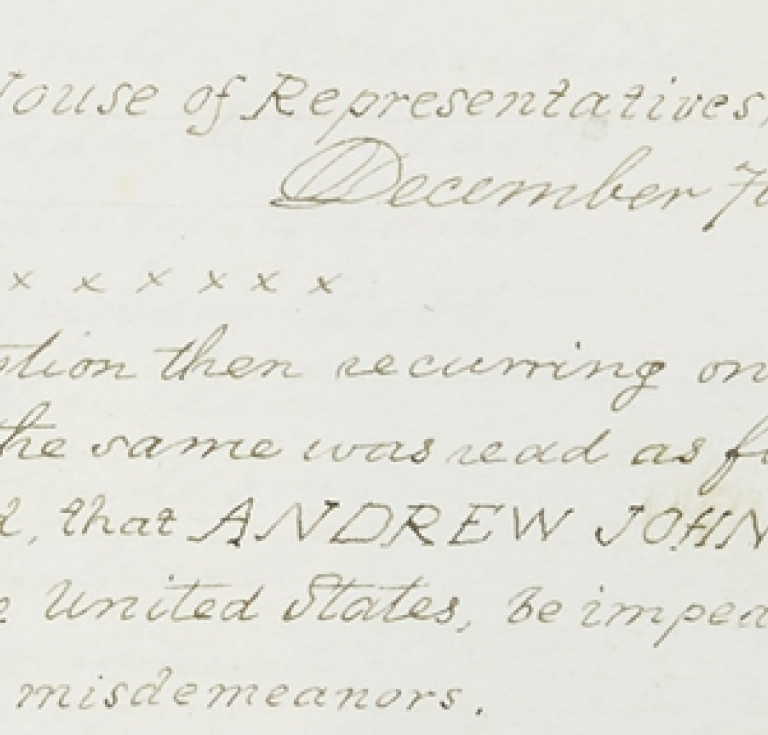 ouse of Representatives,
December 7
x x x x x x
stion then recurring on
the same was read as f
d, that ANDREW JOHN
e United States, be impea
misdemeanors.